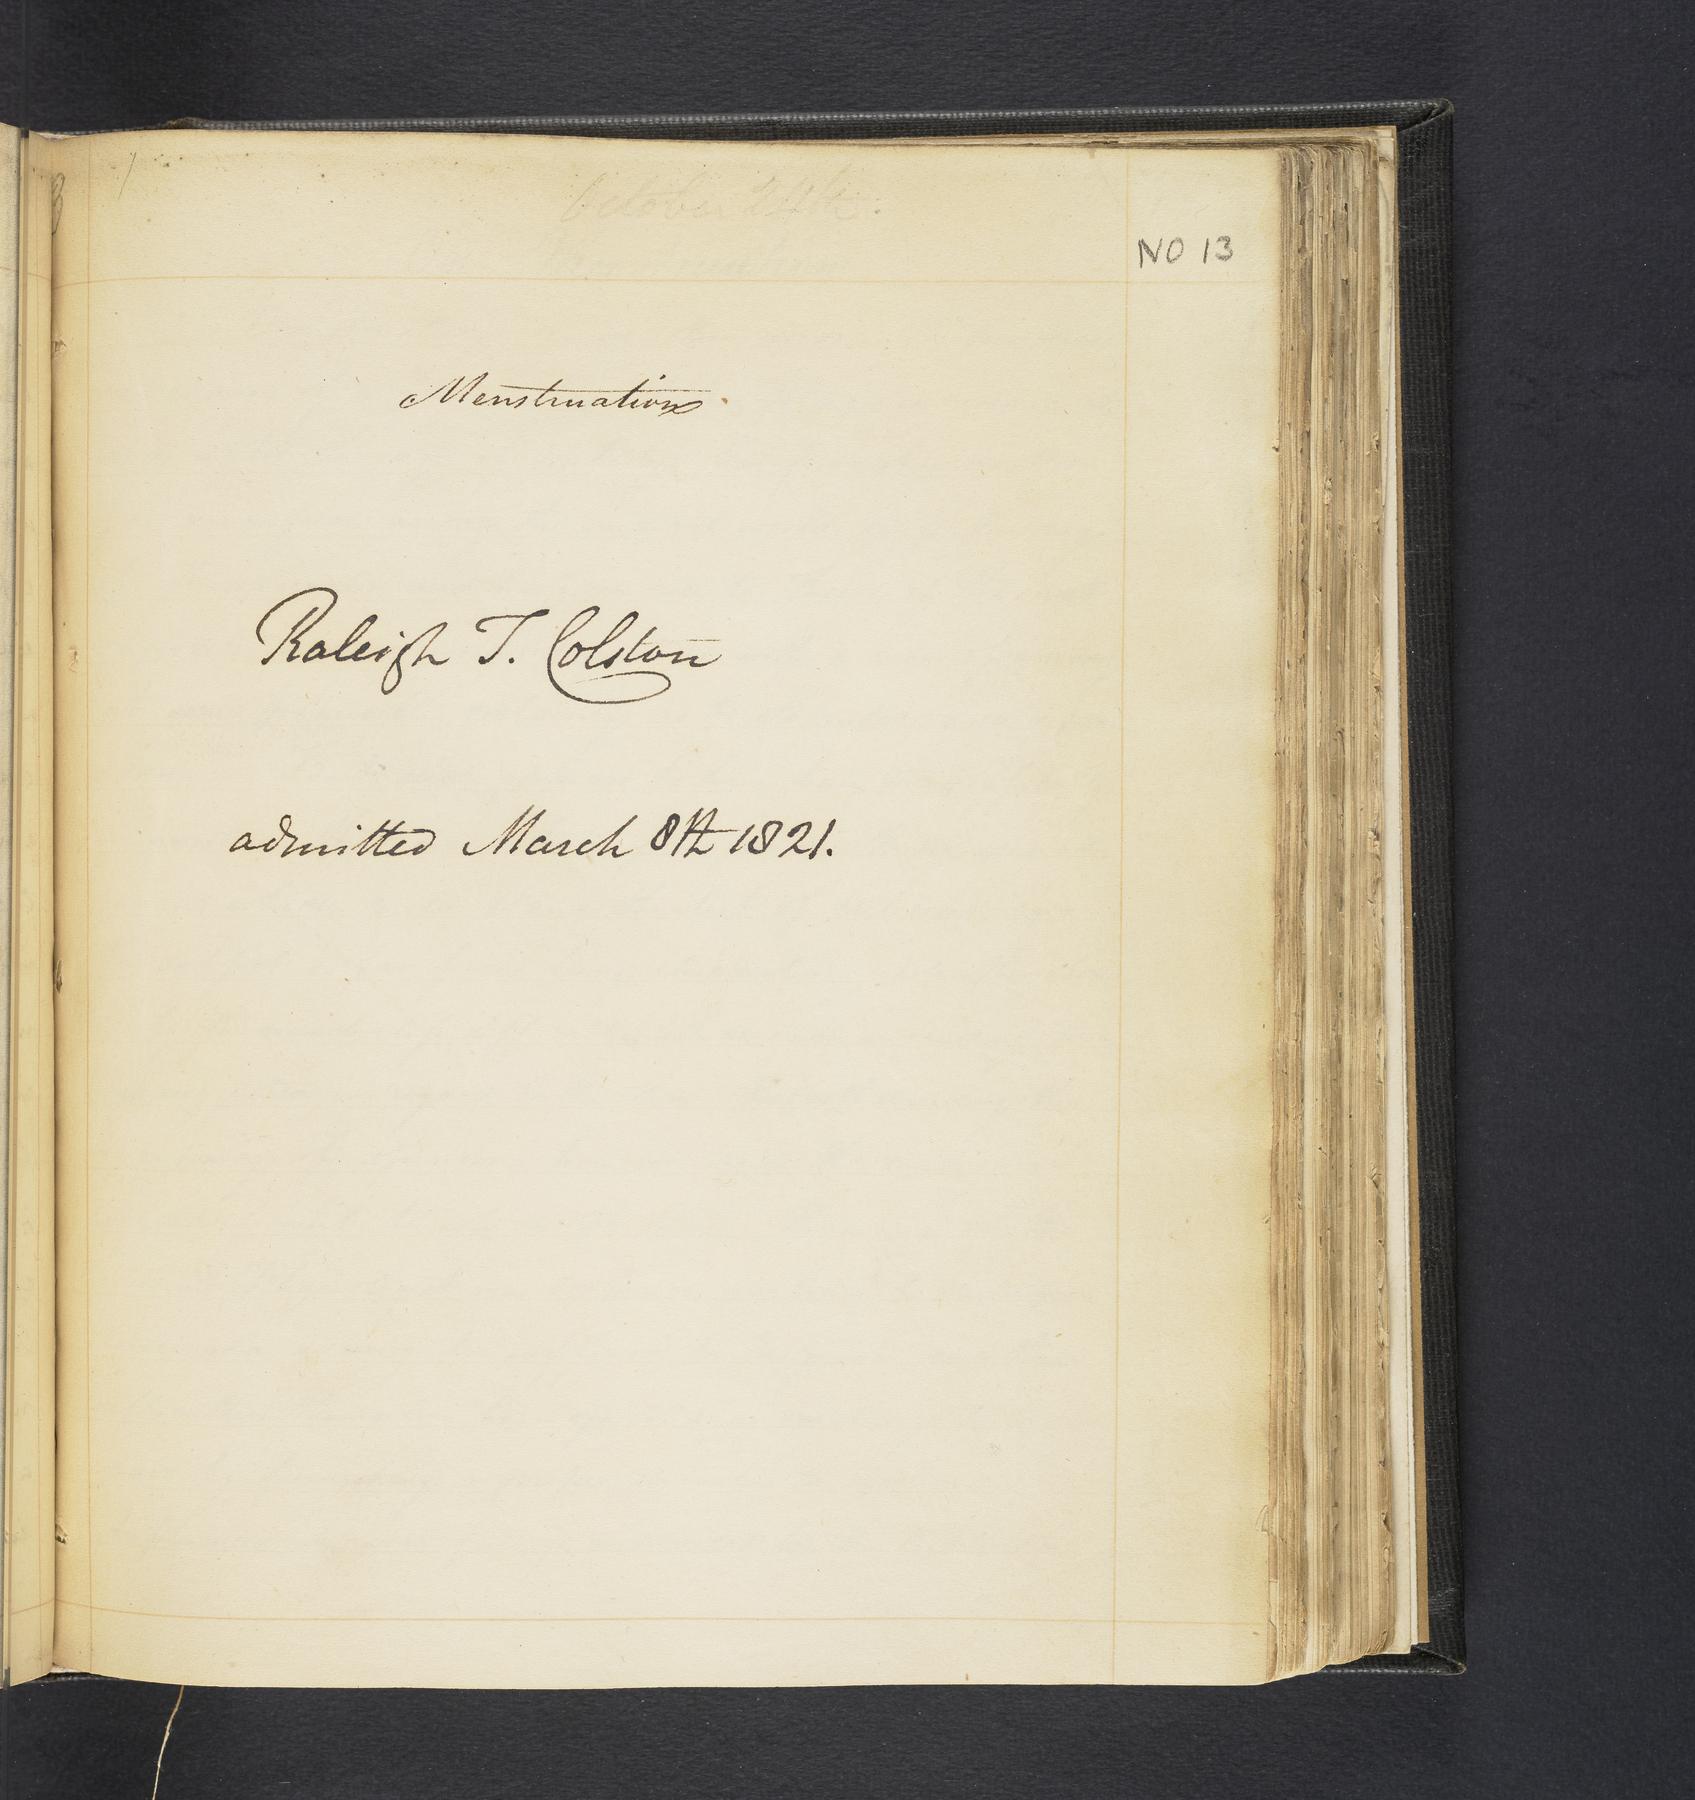 NO 13
Menstruation
Raleigh T. Colston
admitted March 8th 1821.